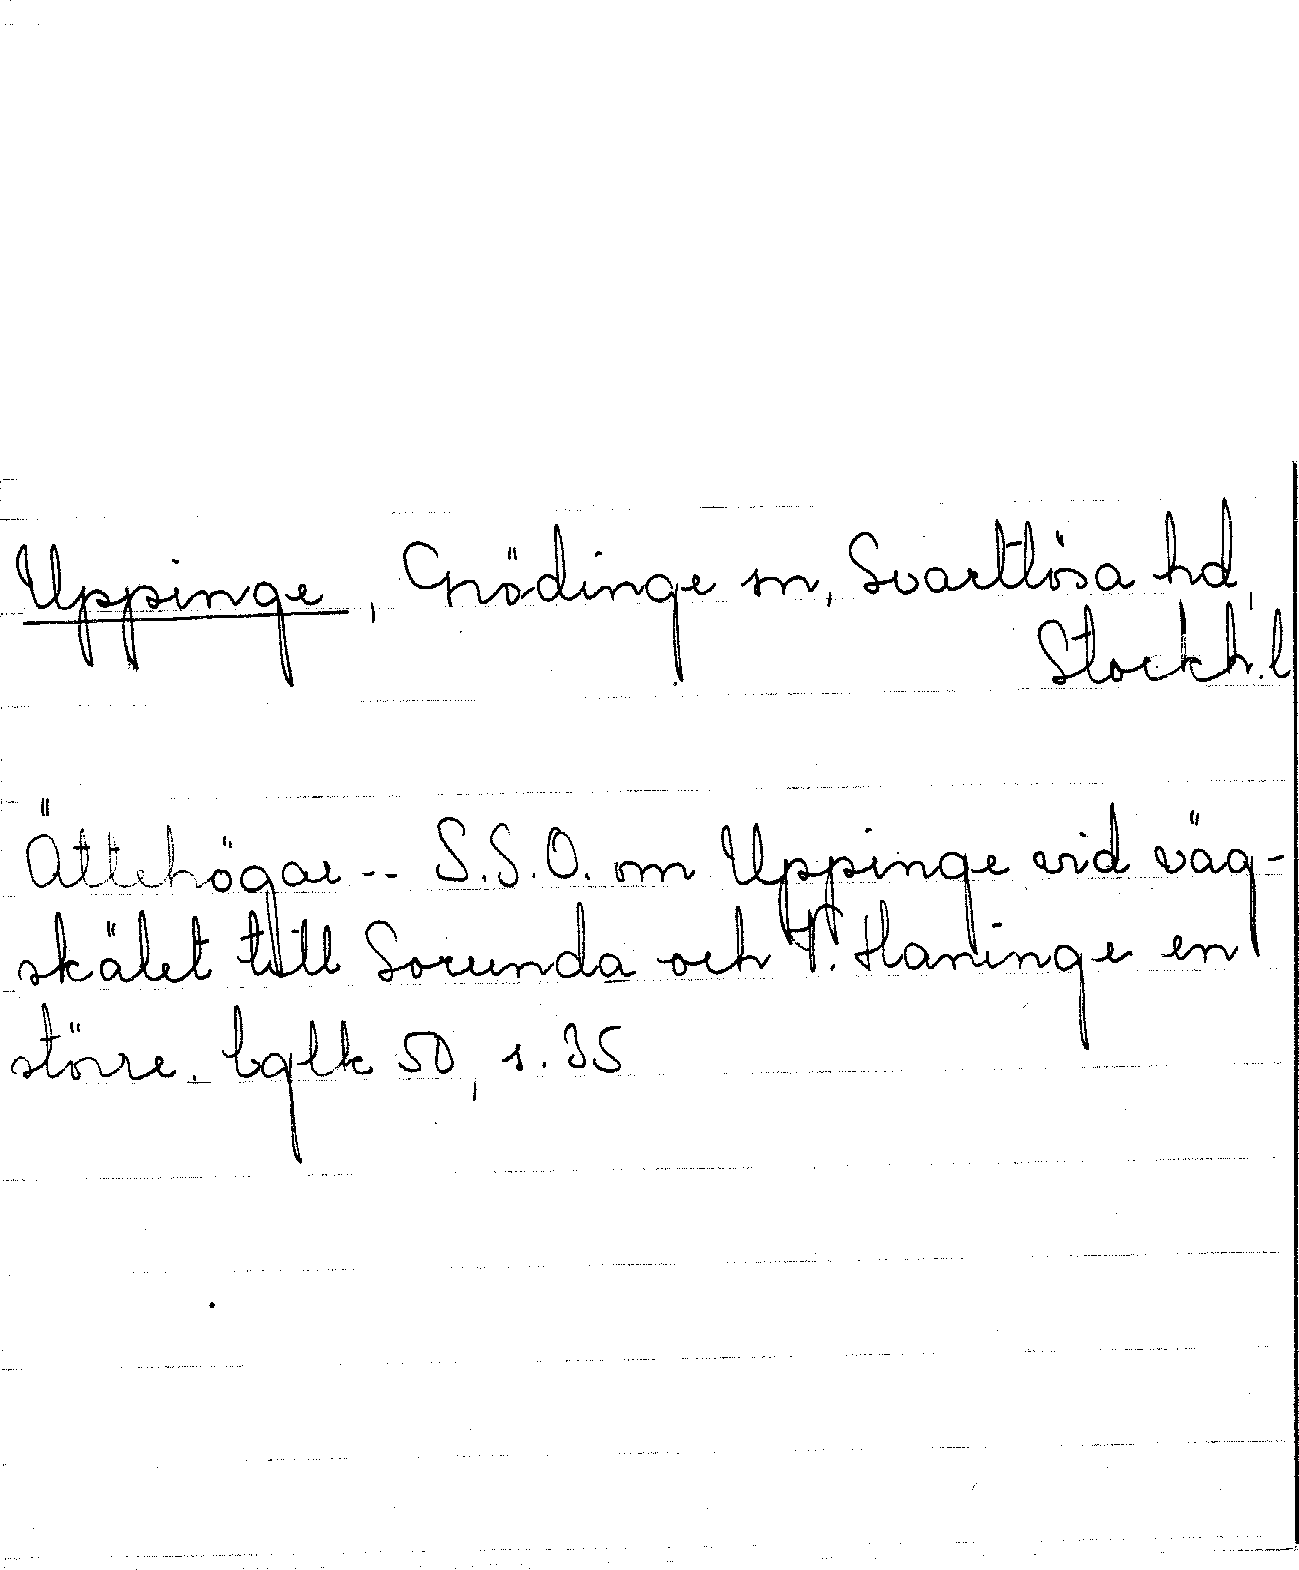 Uppinge, Grödinge sn, Svartlösa hd,
Stockh. l
Ättehögar -- S.S.O. om Uppinge vid väg-
skälet till Sorunda och V. Haninge en
större. bglk 50, s. 35